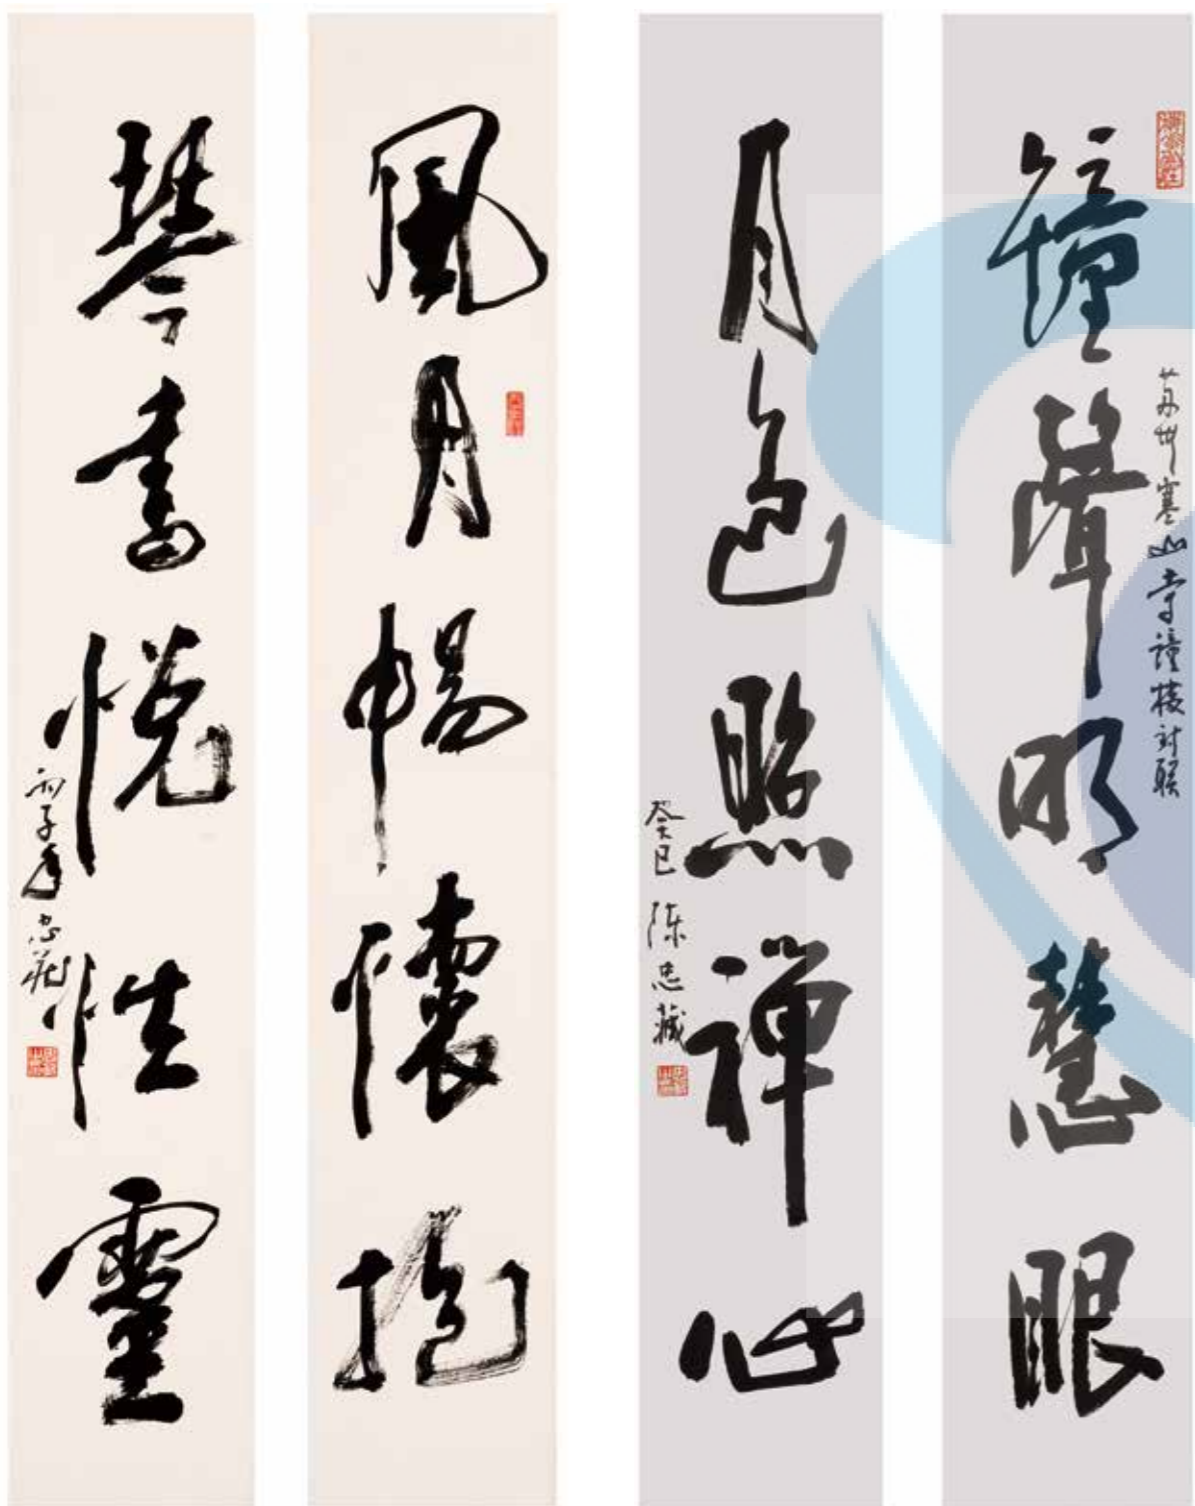 鐘聲明慧眼
蘇州寒山寺鐘楼对联
月色照禅心
癸巳 陈忠葴
風月暢懷抱
琴書悦性靈
丙子年忠葴